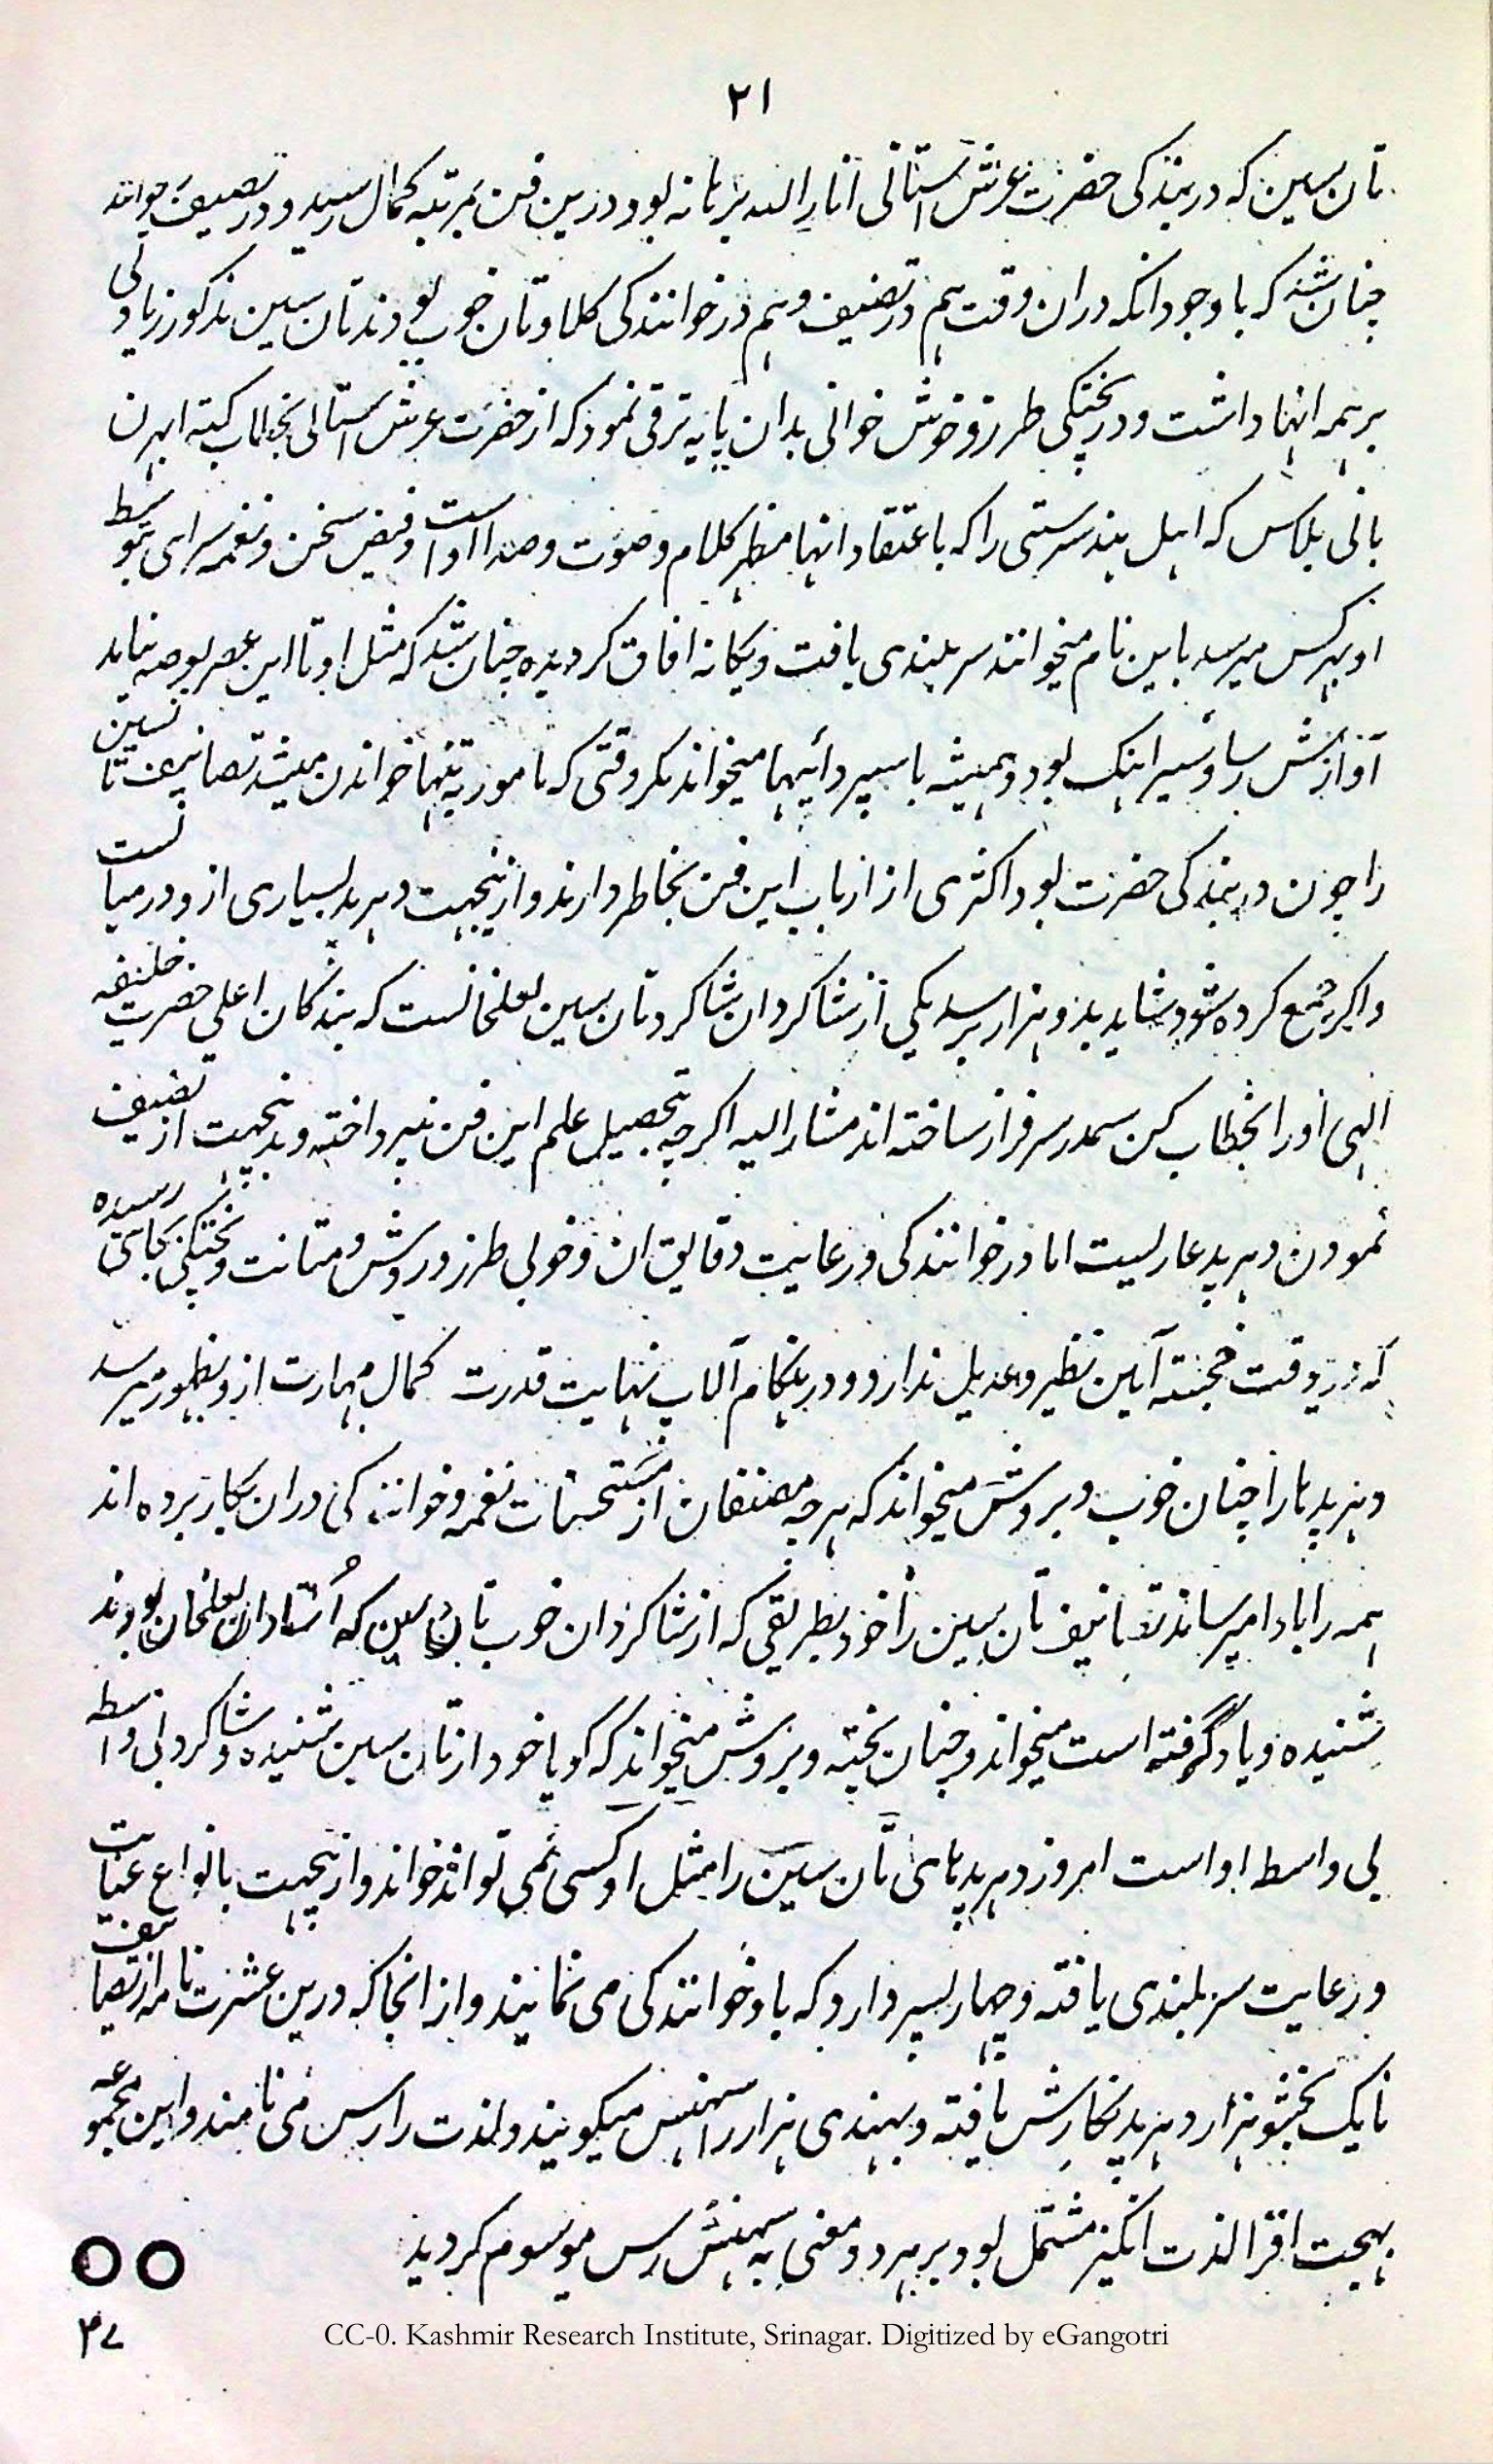 ۲۱
تان سین که در بندکی حضرت عرش آستانی انار الله برهانه بود درین فن بمرتبه کمال رسید و در تصنیف خوانند
چنان شد که با وجود انکه دران وقت هم در تصنیف وهم در خوانندکی کلاونتان خوب بودند تان سین مذکور زیادتی
بر همه انها داشت ودر پختکی طرز و خوش خوانی بدان پایه ترقی نمود که از حضرت عرش آستانی بخطاب کنته ابهرن
بانی بلاس که اهل هند سرستی را که باعتقاد انها مظهر کلام وصوت وصدا اوست وفیض سخن ونغمه سرای بتوسط
او بهر کس میرسد باین نام میخوانند سربلندی یافت ویکانه افاق کردیده چنان شد که مثل او تا این عصر بعرصه نیاید
آوازش رسا وسیر اهنک بود وهمیشه با سپردائیها میخواند مکر وقتی که مامور به تنها خواندن میشد تصانیف تانسین
را چون در بندکی حضرت بود اکثری از ارباب این فن بخاطر دارند وازینجهت دهرپد بسیاری ازو درمیانست
واکر جمع کرده شود شاید بدو هزار برسد یکی از شاکردان شاکرد تان سین لعلخانست که بندکان اعلی حضرت خلیفه
الهی اورا بخطاب کن سمدر سرفراز ساخته اند مشار الیه اکرچه بتحصیل علم این فن نپرداخته وبدینجهت از تصنیف
نمودن دهرپد عاریست اما در خوانندکی ورعایت دقایق ان وخوبی طرز وروش ومتانت وپختکی بجائی رسیده
که درین وقت خجسته آیین نظیر وعدیل ندارد ودر هنکام آلاپ نهایت قدرت کمال مهارت ازو بظهور میرسد
ودهرپد هارا چنان خوب وبروش میخواند که هرچه مصنفان از مستحسنات نغمه وخوانندکی دران بکار برده اند
همه را بادا میرساند تصانیف تان سین را خود بطریقی که از شاکردان خوب تان سین که اُستادان لعلخان بودند
شنیده ویاد گرفته است میخواند وچنان پخته وبروش میخواند که کویا خود از تان سین شنیده وشاکرد بی واسطه
بی واسط او است امروز دهرپدهای تان سین را مثل او کسی نمی تواند خواند وازینجهت بانواع عنایت
ورعایت سربلندی یافته وچهار پسر دارد که با او خوانندکی می نمایند واز انجا که درین عشرت نامه از تصانیف
نایک بخشو هزار دهرپد نکارش یافته وبهندی هزار را سهنس میکویند ولذت را رس می نامند واین مجموعه
بهجت افزا لذت انکیز مشتمل بود بر هردو معنی به سهنس رس موسوم کردید
۴۷
CC-0. Kashmir Research Institute, Srinagar. Digitized by eGangotri